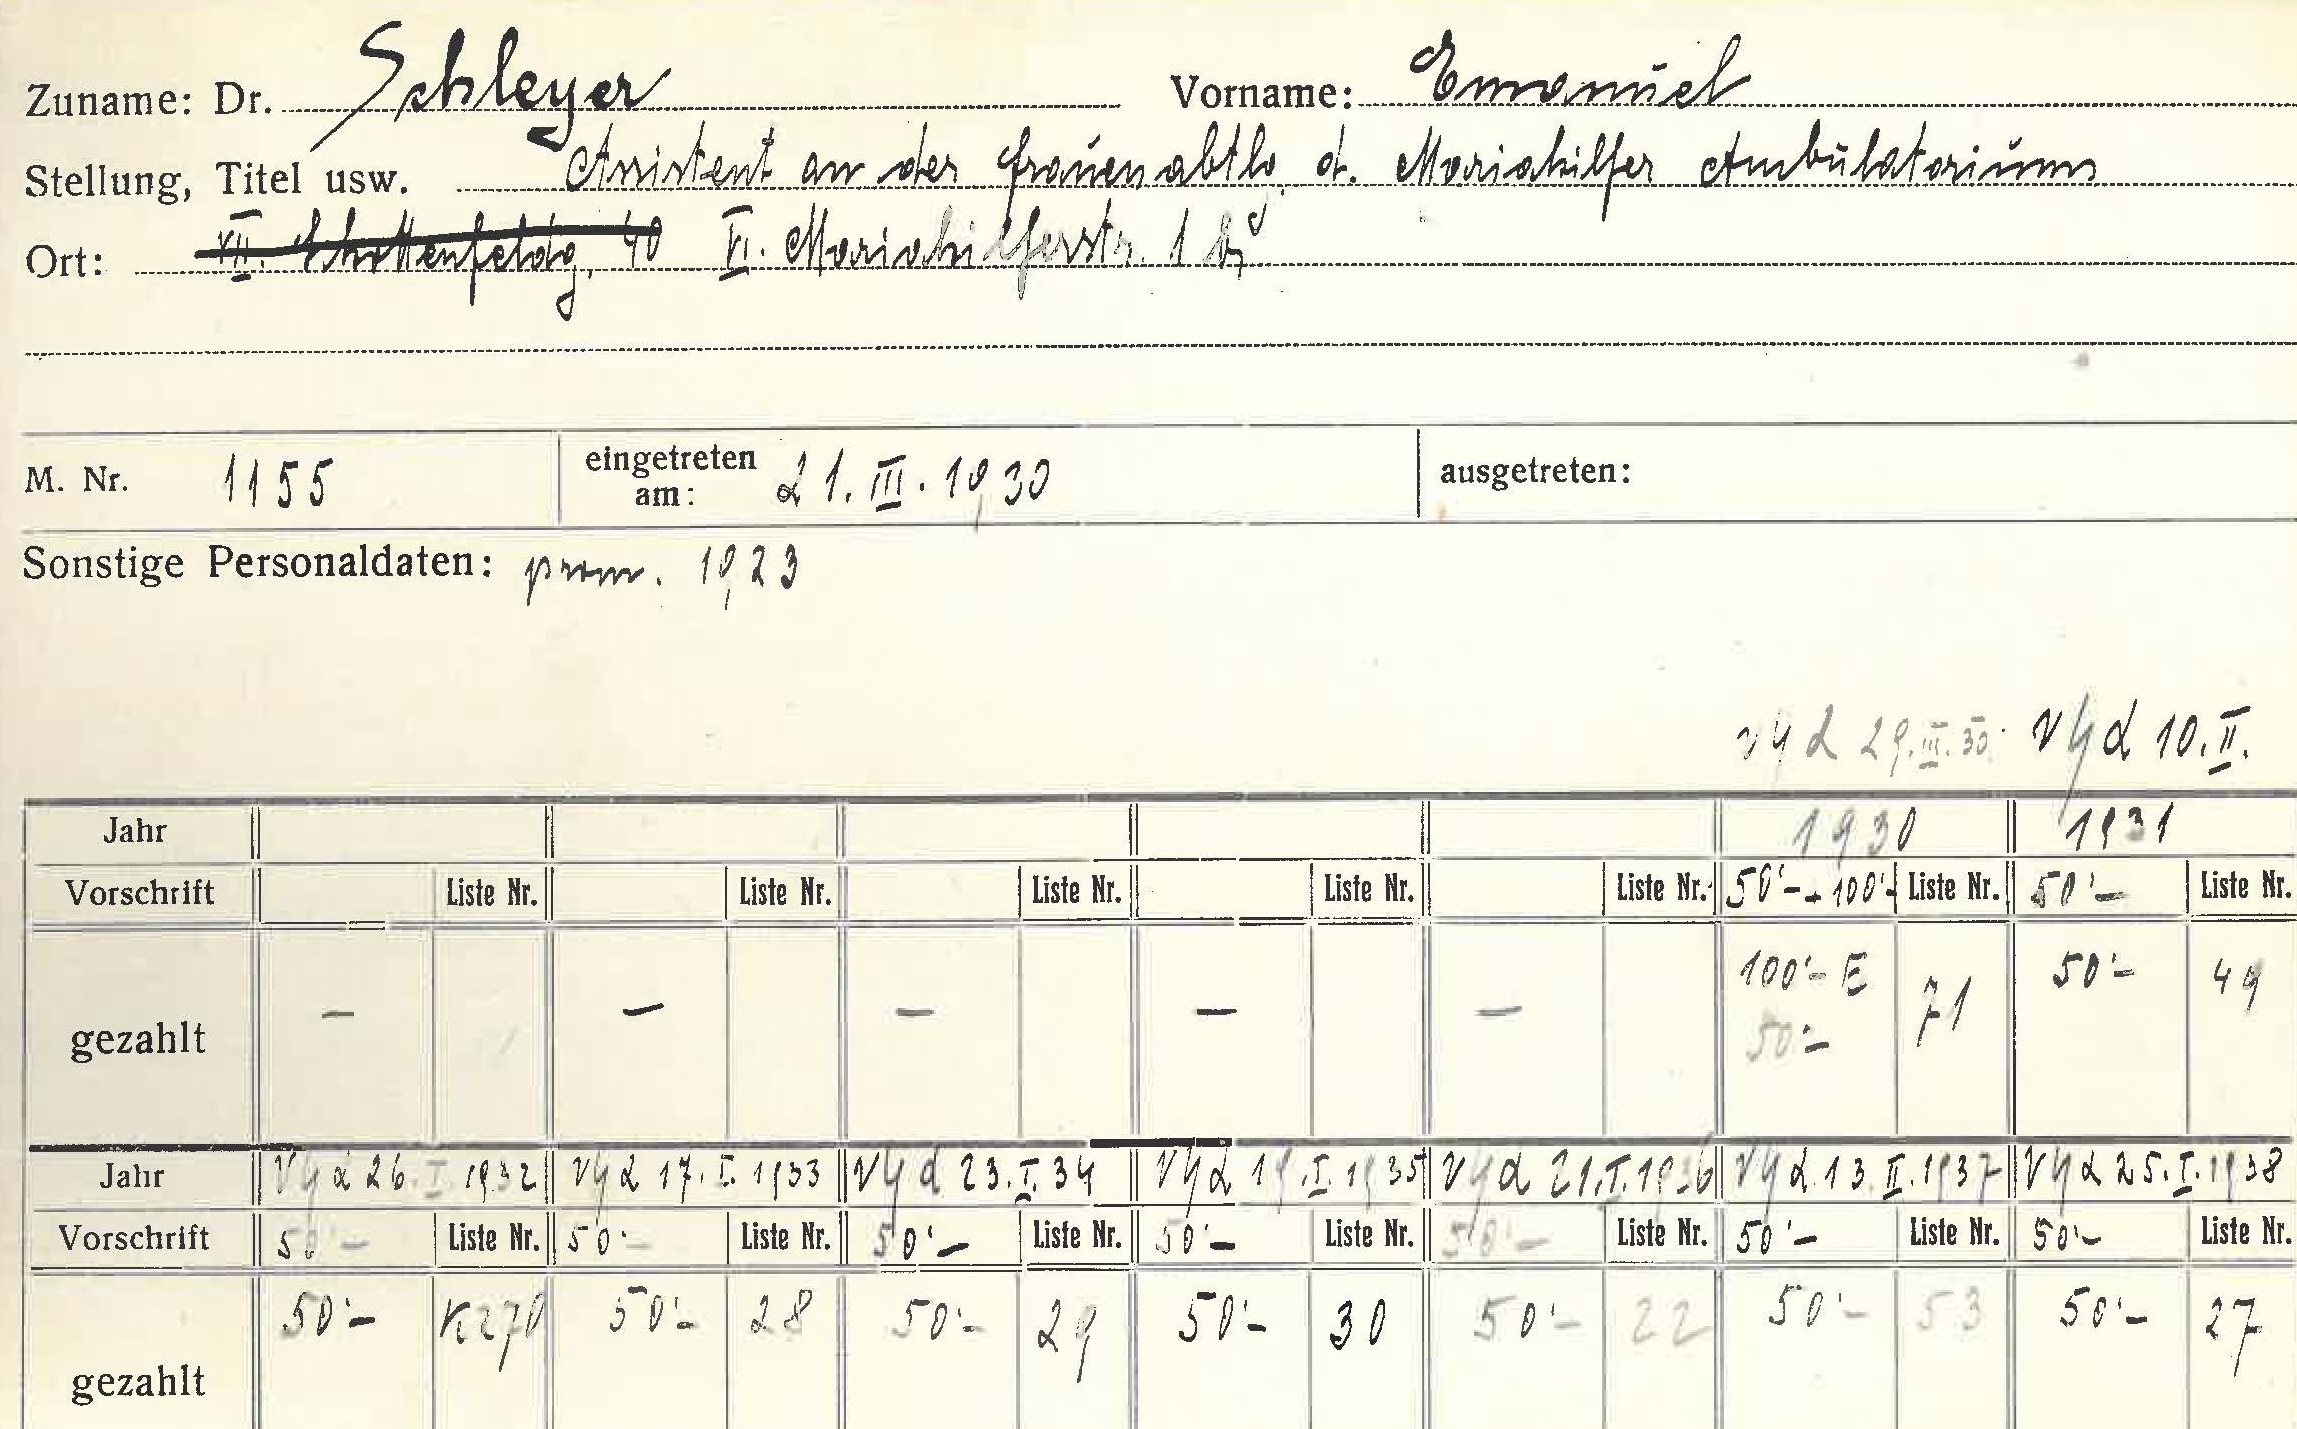 Zuname: Dr. Schleyer Vorname: Emanuel
Stellung, Titel usw. Assistent an der Frauenabtlg. d. Mariahilfer Ambulatoriums
Ort: VII. Schottenfeldg. 40 VI. Mariahilferstr. 1 b
M. Nr. 1155 eingetreten am: 21. III. 1930 ausgetreten:
Sonstige Personaldaten: prom. 1923
29. III. 30. 10. II.
Jahr 1930 1931
Vorschrift Liste Nr. Liste Nr. Liste Nr. Liste Nr. Liste Nr. 50'- + 100'- Liste Nr. 50'- Liste Nr.
gezahlt - - - - - 100'- E 71 50'- 49
50'-
Jahr 26. I. 1932 17. I. 1933 23. I. 34 19. I. 1935 21. I. 1936 13. II. 1937 25. I. 1938
Vorschrift 50'- Liste Nr. 50'- Liste Nr. 50'- Liste Nr. 50'- Liste Nr. 50'- Liste Nr. 50'- Liste Nr. 50'- Liste Nr.
gezahlt 50'- 50'- 28 50'- 29 50'- 30 50'- 22 50'- 53 50'- 27